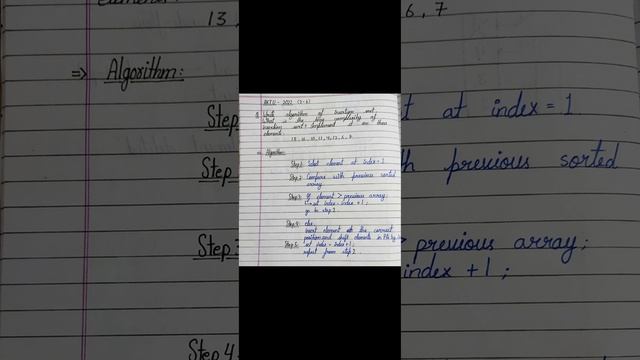 13,
6, 7
⇒ Algorithm:
Step
t at index = 1
Step
th previous sorted
Step 3
> previous array;
index + 1;
Step 4
AKTU - 2022
Q. Write algorithm of insertion sort.
What is the time complexity of
insertion sort? Implement it on these
elements:
⇒ Algorithm:
Step 1: Select element at index = 1
Step 2: Compare with previous sorted
array
Step 3: If element > previous array;
set index = index + 1;
go to step 2.
Step 4: else,
insert element at the correct
position and shift elements in
Step 5: set index = index + 1;
repeat from step 2.